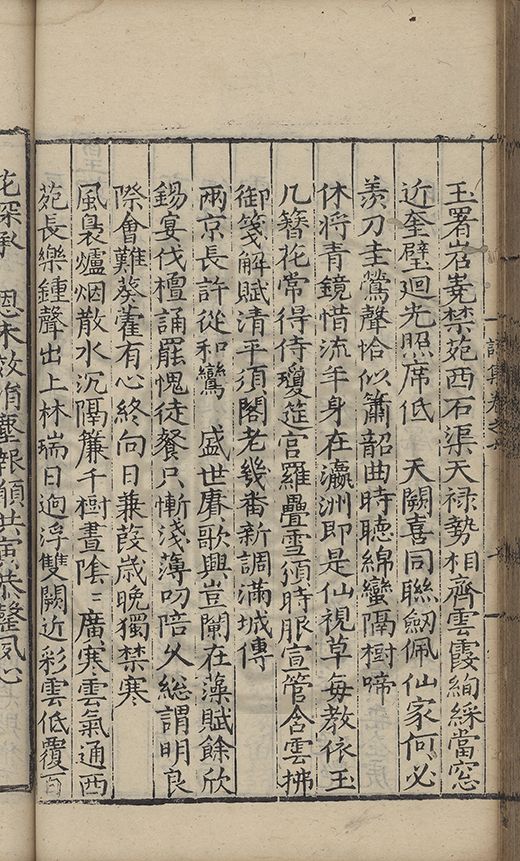 玉署岧嶤禁苑西石渠天禄勢相齊雲霞絢綵當窓
近奎璧迴光照席低　天闕喜同聯劒佩仙家何必
羨刀圭鶯聲恰似簫韶曲時聽綿蠻隔樹啼
休将青鏡惜流年身在瀛洲即是仙視草每教依玉
几簪花常得侍瓊筵宫羅疊雪頒時服宣管含雲拂
御箋解賦清平須閣老幾番新調滿城傳
兩京長許從和鸞　盛世賡歌興豈闌在藻賦餘欣
錫宴伐檀誦罷愧徒餐只慚淺薄叨陪久総謂明良
際會難葵藿有心終向日蒹葭歲晚獨禁寒
風裊爐烟散水沉隔簾千樹晝陰〻廣寒雲氣通西
苑長樂鍾聲出上林瑞日迥浮雙闕近彩雲低覆百
花深承　恩未效涓塵報願
詩集卷之